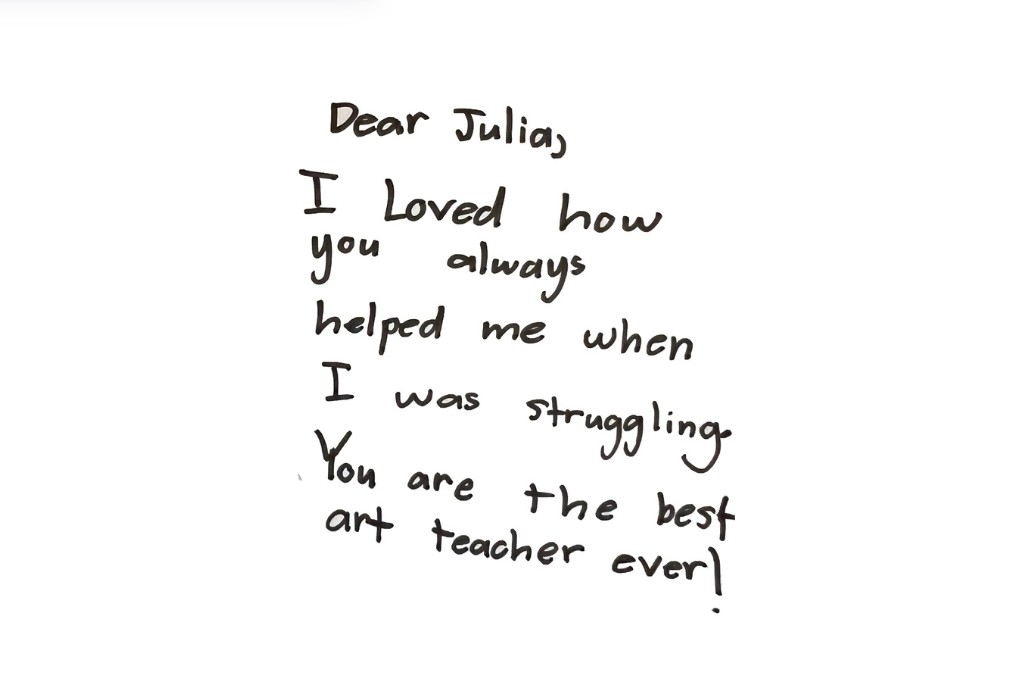 Dear Julia,
I Loved how
you always
helped me when
I was struggling.
You are the best
art teacher ever!